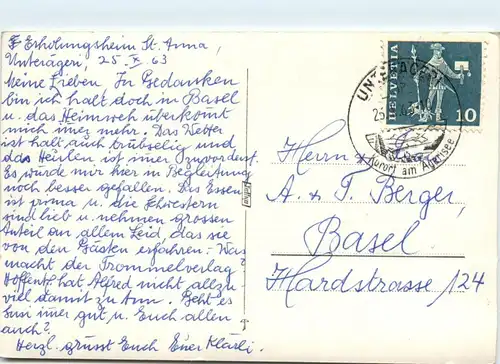 Erholungsheim St. Anna,
Unterägeri, 25. X. 63
Meine Lieben. In Gedanken
bin ich halt doch in Basel
u. das Heimweh überkomt
mich imez mehr. Das Wetter
ist halt auch trübselig und
das Heulen ist imer zuvorderst.
Es würde mir hier in Begleitung
noch besser gefallen. Das Essen
ist prima u. die Schwestern
sind lieb u. nehmen grossen
Anteil an allem Leid, das sie
von den Gästen erfahren. Was
macht der Trommelverlag?
Hoffentl. hat Alfred nicht allzu-
viel damit zu tun. Geht es
Susi imer gut u. Euch allen
auch?
Herzl. grüsst Euch Euer Klärli.
HELVETIA
10
UNTERÄGERI
25.
Kurort am Ägerisee
Herrn &
A. & T. Berger,
Basel
Hardstrasse 124